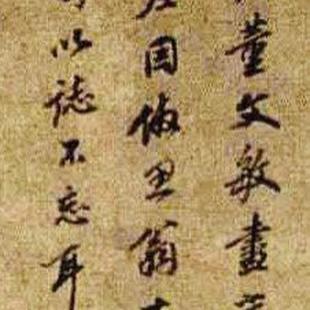 董文敏畫
因倣思翁
以誌不忘耳